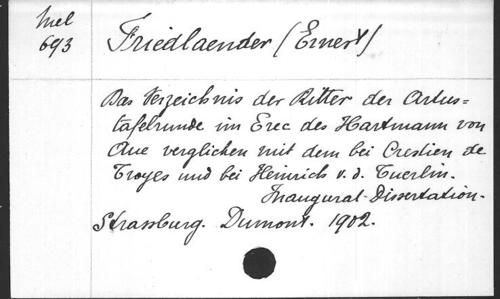 Mel
693
Friedlaender (Ernest)
Das Verzeichnis der Ritter der Artus=
tafelrunde im Erec des Hartmann von
Aue verglichen mit dem bei Crestien de
Troyes und bei Heinrich v. d. Tuerlin.
Inaugural-Dissertation.
Strassburg. Dumont. 1902.